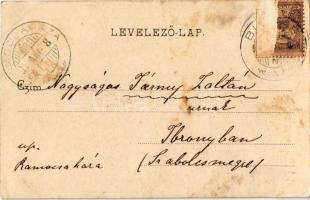 LEVELEZŐ-LAP.
Czim: Nagyságos Jármy Zoltán
urnak
Ibronyban
up.
Ramocsaháza
(Szabolcsmegye)